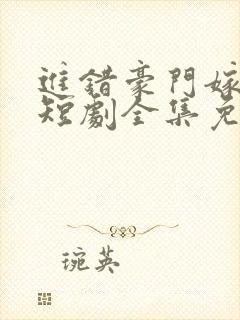 進錯豪門嫁
短劇全集免
琬英